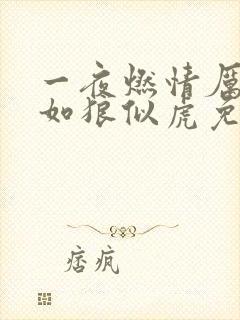 一夜燃情厲
如狼似虎免
痞疯